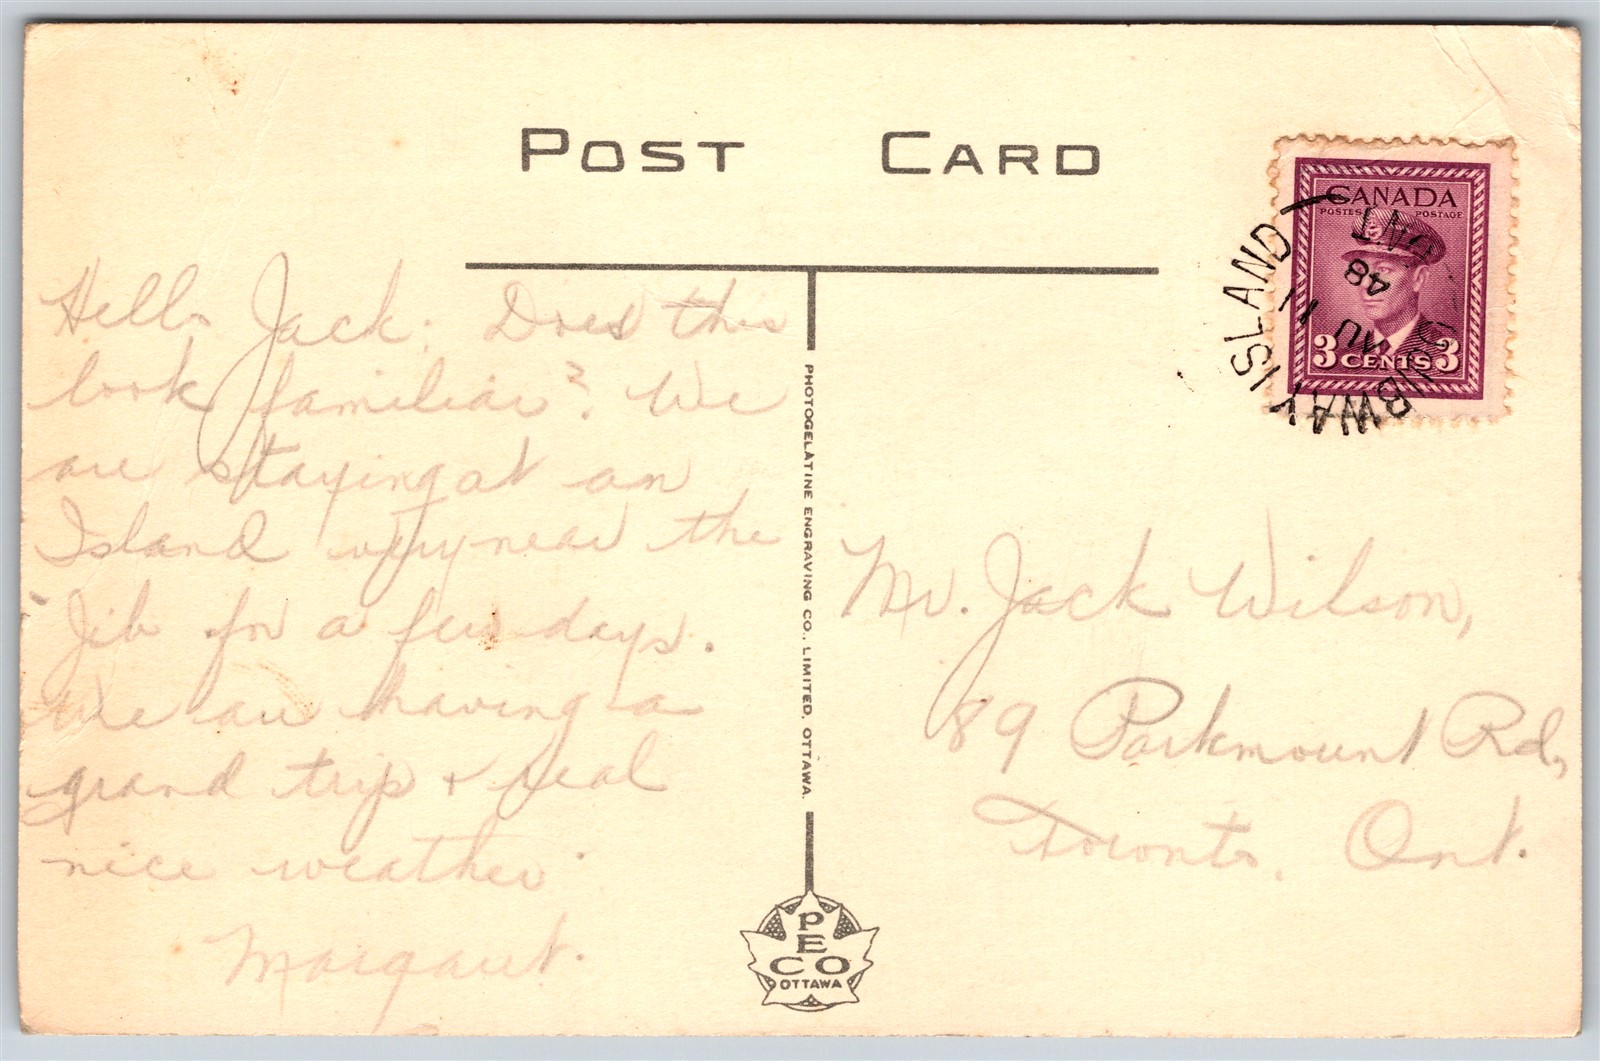 POST CARD
CANADA
POSTES POSTAGE
3 CENTS 3
OJIBWAY ISLAND
ONT
48
JU
11
Hello Jack. Does this
look familiar? We
are staying at an
Island very near the
Jib for a few days.
We are having a
grand trip + real
nice weather.
Margaret.
PHOTOGELATINE ENGRAVING CO., LIMITED, OTTAWA.
Mr. Jack Wilson,
89 Parkmount Rd,
Toronto, Ont.
PECO
OTTAWA